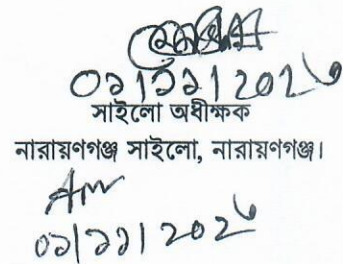 ০১|১১|২০২৩
সাইলো অধীক্ষক
নারায়ণগঞ্জ সাইলো, নারায়ণগঞ্জ।
০১|১১|২০২৩